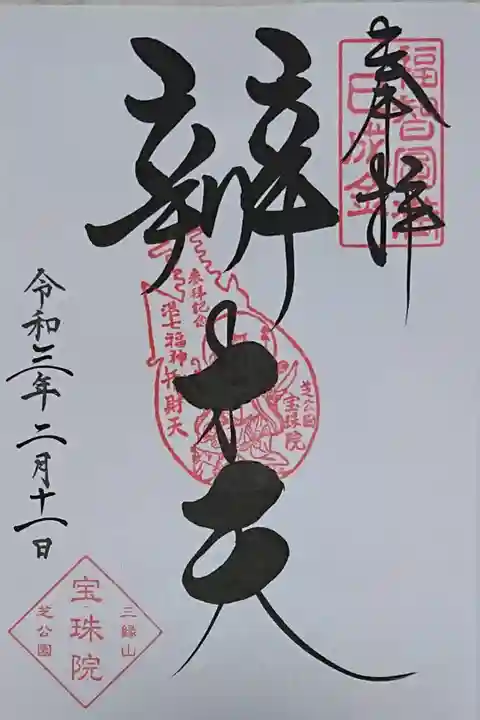 奉拝
福智円満
巳成金
辨才天
参拝記念
港七福神
弁財天
芝公園
宝珠院
令和三年二月十一日
三縁山
宝珠院
芝公園